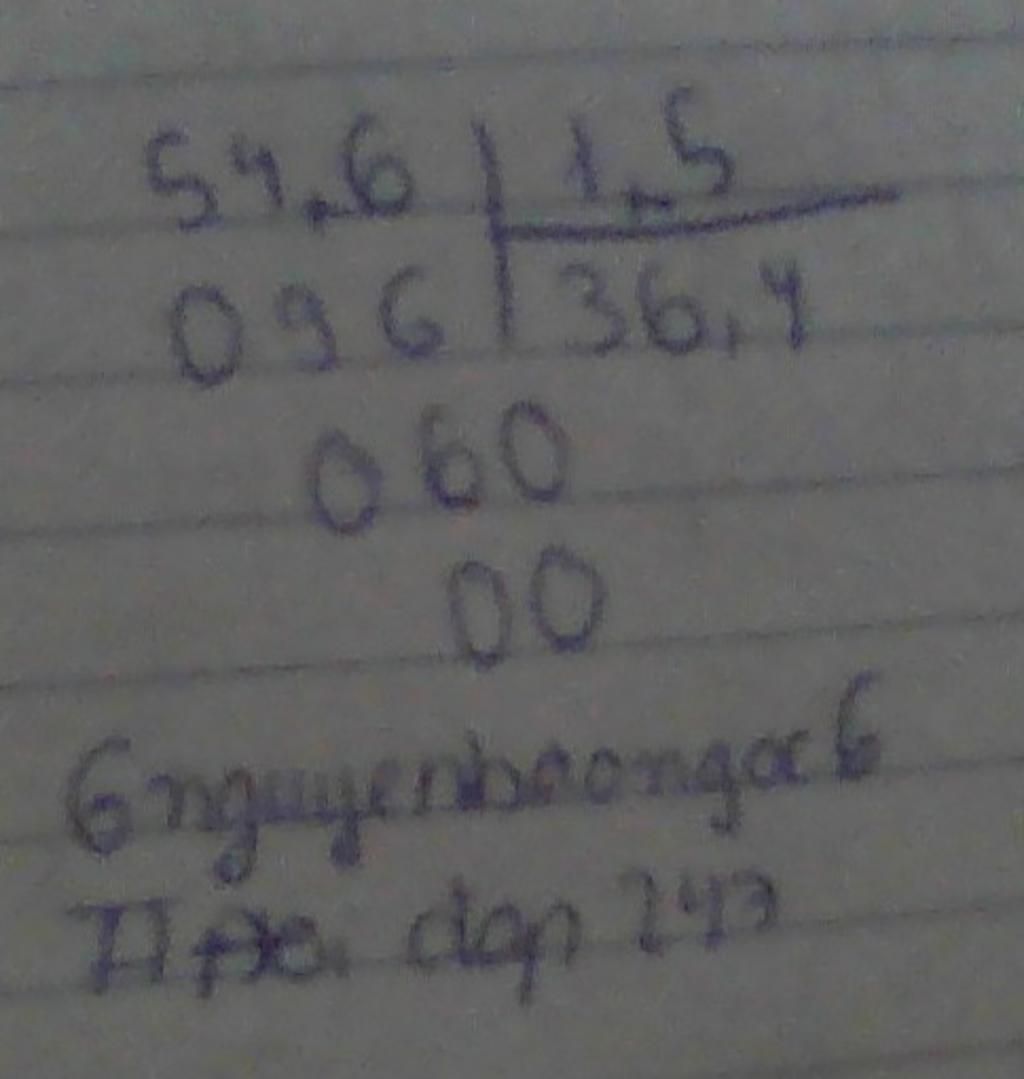 54,6 1,5
096 36,4
060
00
6nguyenhoongoc6
dap 247